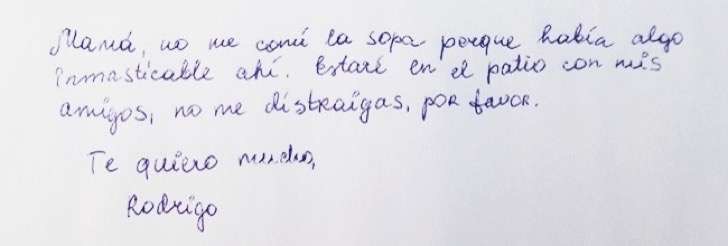 Mamá, no me comí la sopa porque había algo
inmasticable ahí. Estaré en el patio con mis
amigos, no me distraigas, por favor.
Te quiero mucho,
Rodrigo